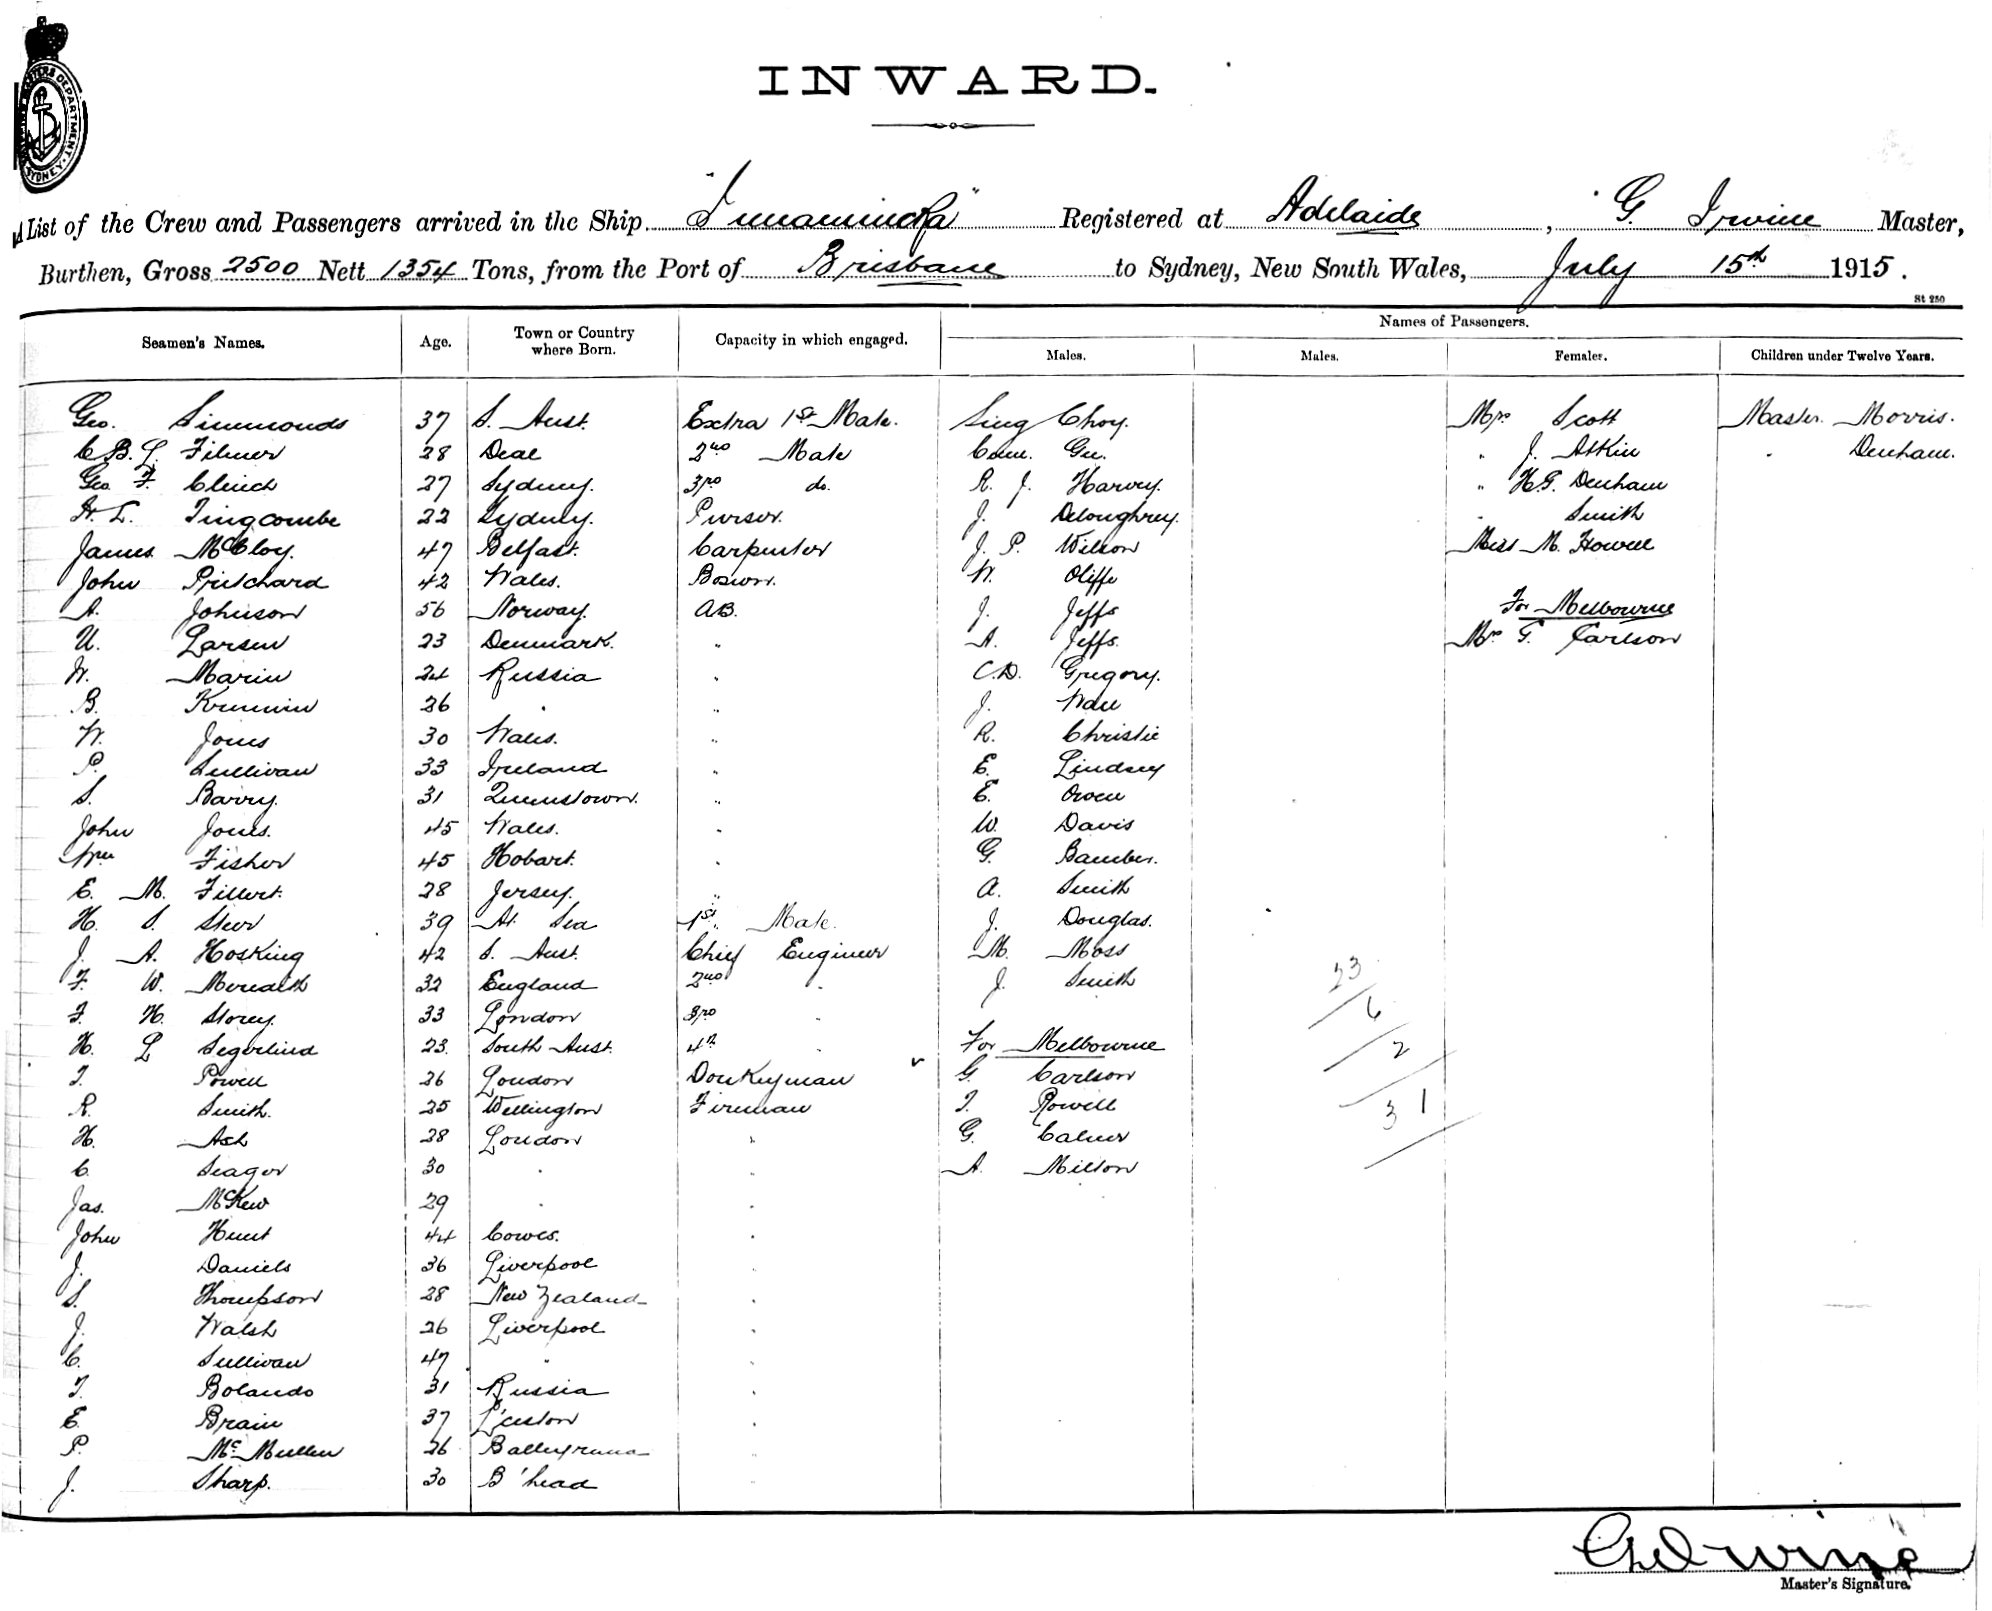 INWARD.
List of the Crew and Passengers arrived in the Ship "Innamincka" Registered at Adelaide, G. Irvine Master,
Burthen, Gross 2500 Nett 1354 Tons, from the Port of Brisbane to Sydney, New South Wales, July 15th 1915.
St 250
Names of Passengers.
Seamen's Names. Age. Town or Country where Born. Capacity in which engaged. Males. Males. Females. Children under Twelve Years.
Geo. Simmonds 37 S. Aust. Extra 1st Mate. Sing Choy. Mrs Scott Master Morris.
C B. L. Filmer 28 Deal 2nd Mate Gee. " J. Atkin " Denham.
Geo F. Clinch 27 Sydney. 3rd do. R. J. Harvey. " H.G. Denham
H. L. Tingcombe 22 Sydney. Purser. J. Deloughrey. " Smith
James McCloy. 47 Belfast. Carpenter J. P. Wilson Miss M. Howell
John Pritchard 42 Wales. Bosun. W. Oliffe
A. Johnson 56 Norway. AB. J. Jeffs For Melbourne
U. Larsen 23 Denmark. " A. Jeffs. Mrs G. Carlson
W. Marin 24 Russia " C.D. Gregory.
B. 26 " " J. Wall
W. Jones 30 Wales. " R. Christie
P. Sullivan 33 Ireland " E. Lindsey
S. Barry. 31 Queenstown. " E. Owen
John Jones. 45 Wales. " W. Davis
Wm Fisher 45 Hobart. " G. Bamber.
E. M. 28 Jersey. " A. Smith
H. S. Steer 39 At Sea 1st Mate. J. Douglas.
J. A. Hosking 42 S. Aust. Chief Engineer M. Moss
F. W. Meredith 32 England 2nd " J. Smith
23
F. H. Storey. 33 London 3rd "
6
H. L Segerlind 23. South Aust. 4th " For Melbourne
2
T. Powell 26 London Donkeyman G. Carlson
R. Smith. 25 Wellington Fireman T. Powell
31
H. Ash 28 London " G.
C. Seager 30 " " A. Milton
Jas. McKew 29 " "
John Hunt 44 Cowes. "
J. Daniels 36 Liverpool "
S. Thompson 28 New Zealand "
J. Walsh 26 Liverpool "
C. Sullivan 47 " "
T. Bolands 31 Russia "
E. Brain 37 L'ceston "
P. McMullen 26 "
J. Sharp. 30 B'head "
G Irvine
Master's Signature.